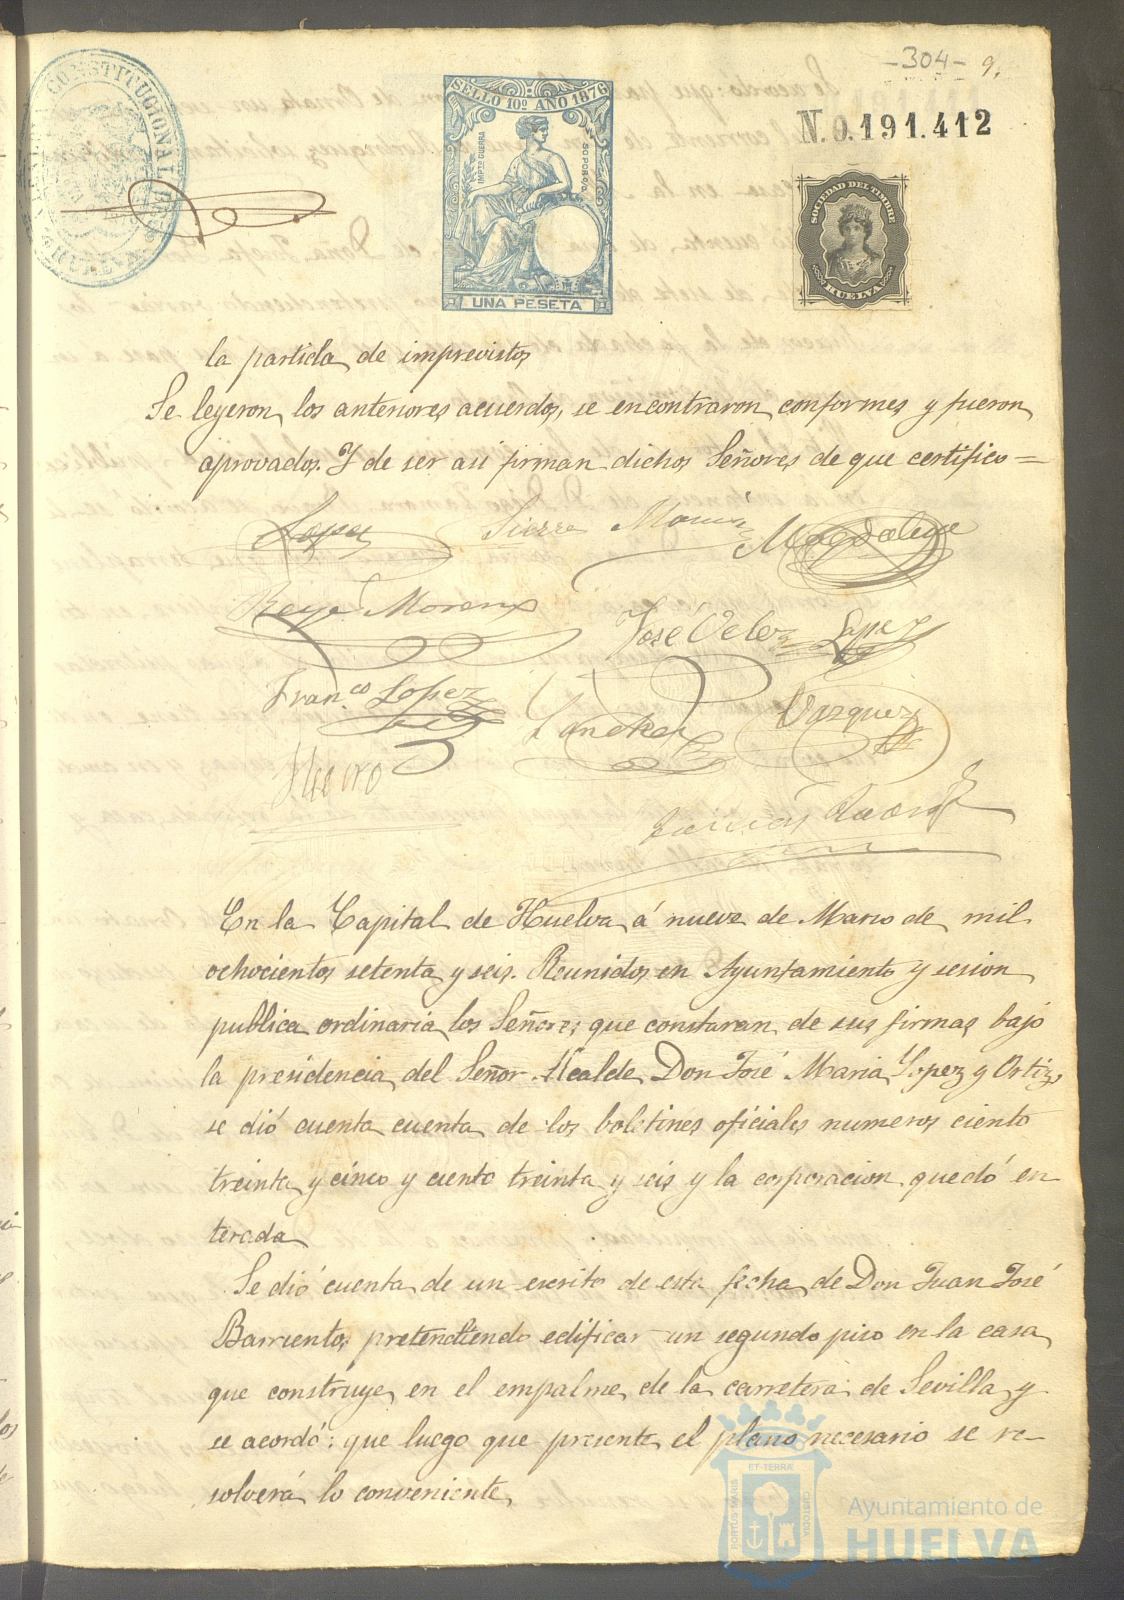 -304- 9.
N. 0.191.412
ALCALDIA CONSTITUCIONAL DE HUELVA
SELLO 10º AÑO 1876
IMPTO GUERRA
50 POR 0/0
UNA PESETA
SOCIEDAD DEL TIMBRE
HUELVA
la partida de imprevistos
Se leyeron los anteriores acuerdos, se encontraron conformes y fueron
aprovados. Y de ser asi firman dichos Señores de que certifico=
Lopez Sierra Marin Magdalena
Reyes Moreno José Velez Lopez
Franco Lopez Sanchez Vazquez
En la Capital de Huelva á nueve de Marzo de mil
ochocientos setenta y seis. Reunidos en Ayuntamiento y sesion
publica ordinaria los Señores que constaran de sus firmas bajo
la presidencia del Señor Alcalde Don José Maria Lopez y Ortiz,
se dió cuenta cuenta de los boletines oficiales numeros ciento
treinta y cinco y ciento treinta y seis y la corporacion quedó en
terada
Se dió cuenta de un escrito de esta fecha de Don Juan José
Barriento, pretendiendo edificar un segundo piso en la casa
que construye en el empalme de la carretera de Sevilla y
se acordó: que luego que presente el plano necesario se re-
solverá lo conveniente
PORTUS MARIS
ET TERRÆ
CUSTODIA
Ayuntamiento de
HUELVA